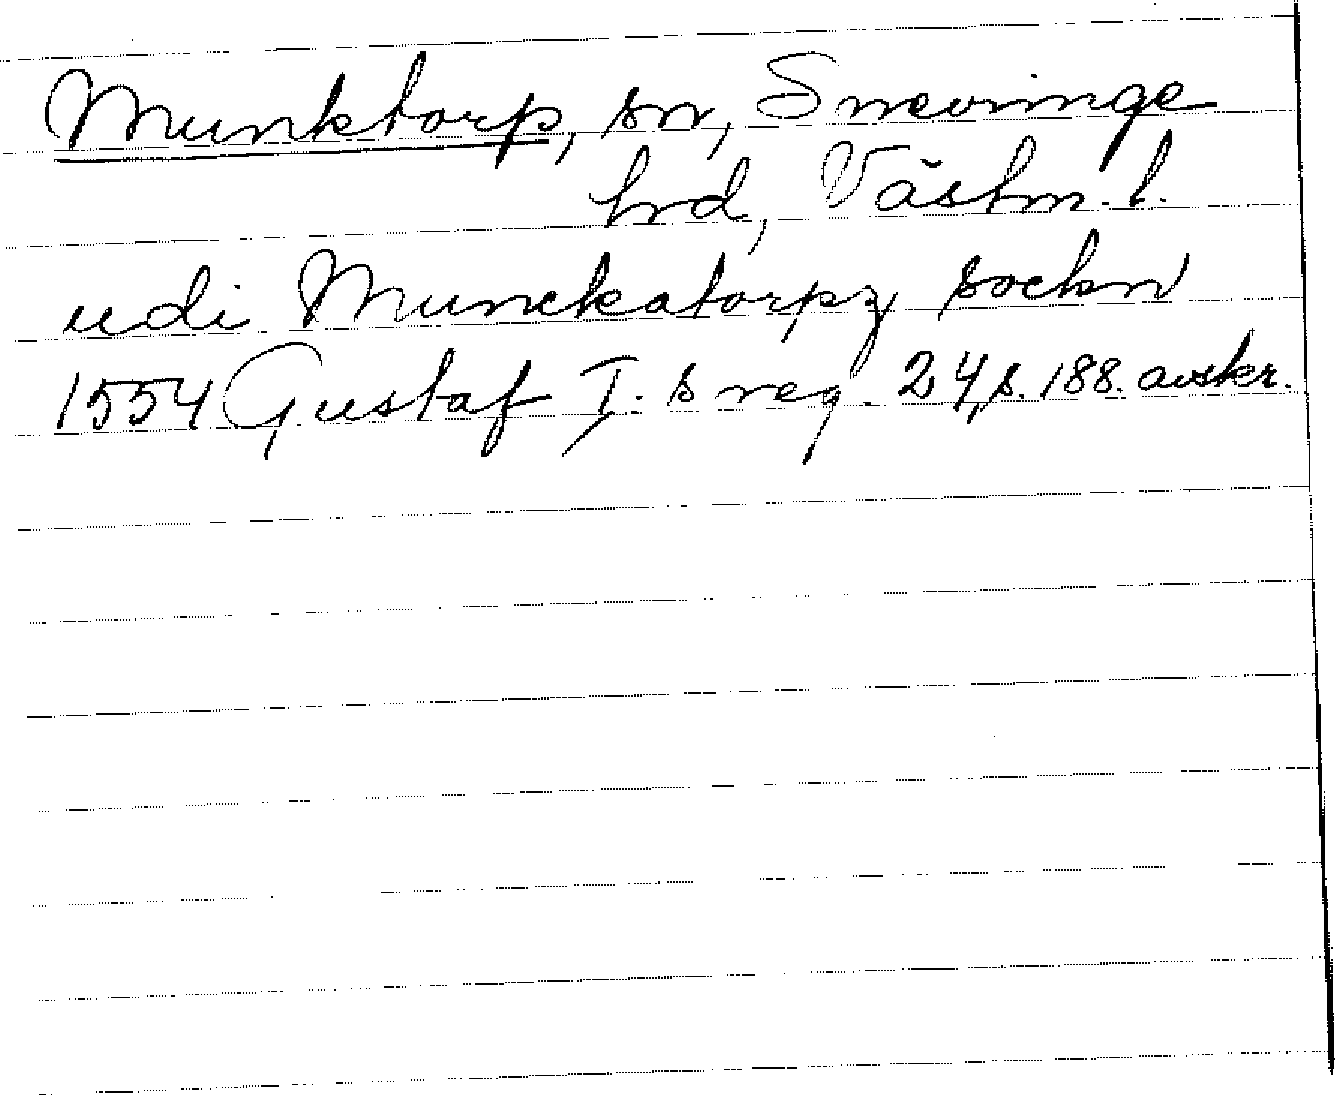 Munktorp, sn, Snevringe
hrd, Västm. l.
udi Munckatorpz sochn
1554 Gustaf I. s reg. 24, s. 188. avskr.